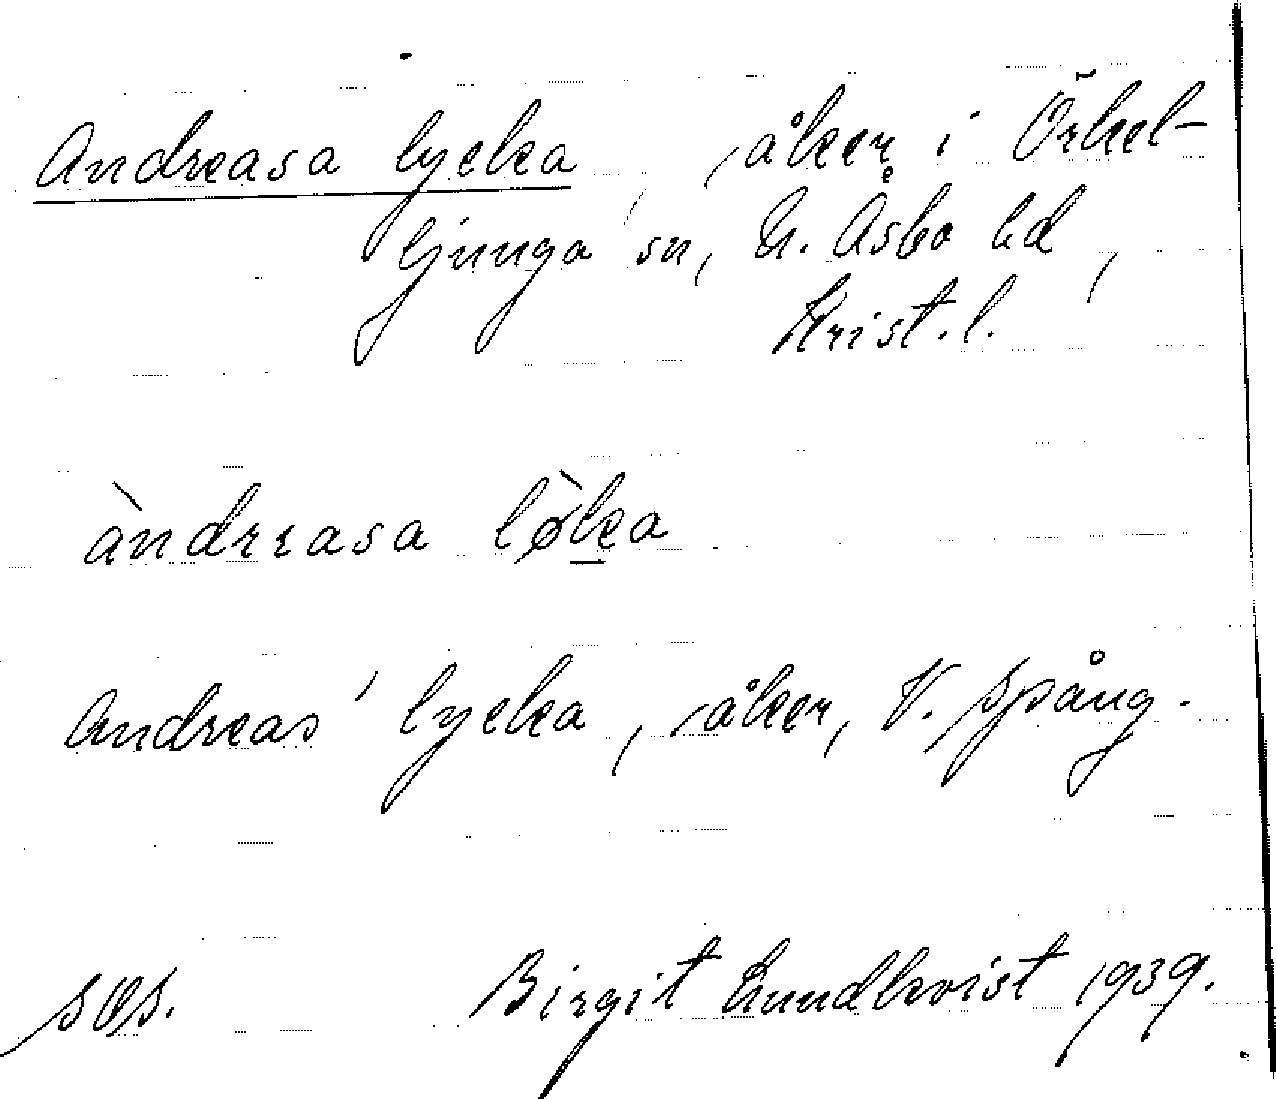 Andreasa lycka, åker i Örkel-
ljunga sn, N. Åsbo hd,
Krist. l.
àndreasa lø̀ka
Andreas' lycka, åker, V. Spång.
Birgit Lundkvist 1939.